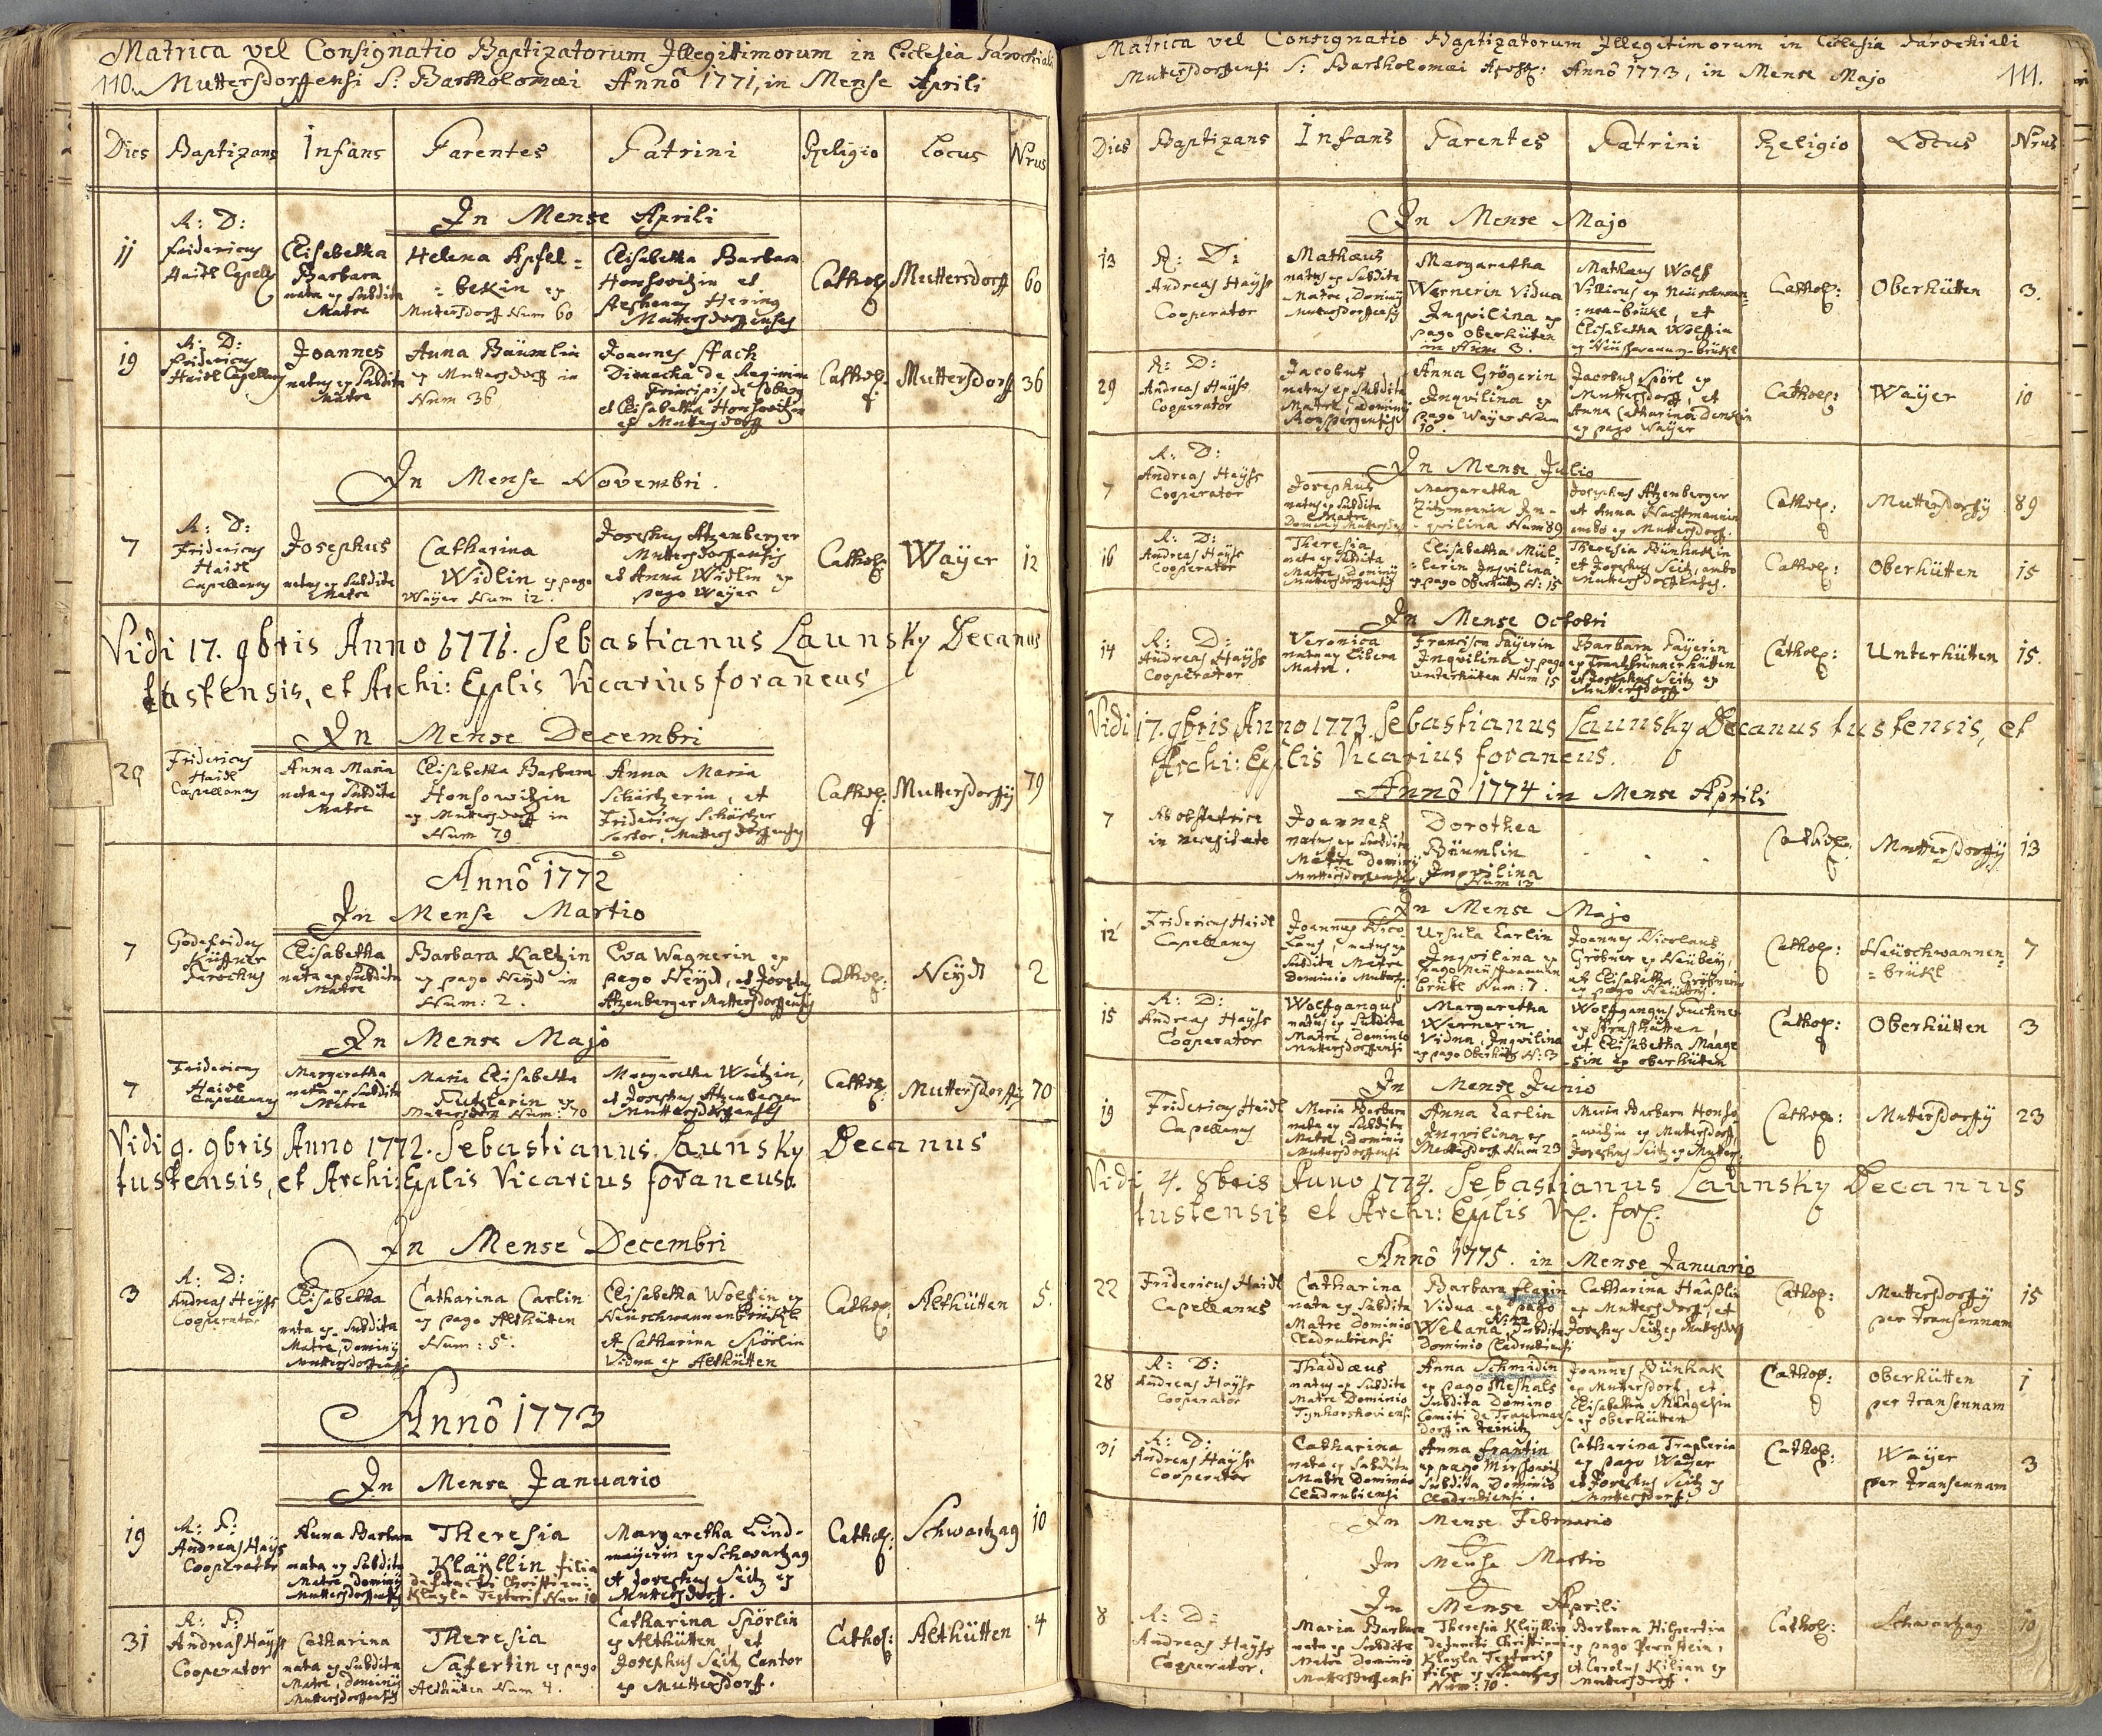 Matrica vel Consignatio Baptizatorum Illegitimorum in Ecclesia Parochiali
110. Muttersdorffensi S: Bartholomæi Annô 1771, in Mense Aprili
Dies Baptizans Infans Parentes Patrini Religio Locus Nrus
In Mense Aprili
11
R: D:
Fridericus
Haidl
Elisabetha
Barbara
nata ex Subdita
Matre
Helena Apfel=
=bekin ex
Muttersdorff Num 60
Elisabetha Barbara
Honsowitzin et
Hering
Muttersdorffenses
Cathol:
Muttersdorff
60
19
R: D:
Fridericus
Haidl Capellanus
Joannes
natus ex Subdita
Matre
Anna Bäumlin
ex Muttersdorff in
Num 36
Joannes Stach
de Regimine
Principis de
et Elisabetha Honsowitzin
ex Muttersdorff
Cathol:
Muttersdorff
36
In Mense Novembri.
7
R: D:
Fridericus
Haidl
Capellanus
Josephus
natus ex Subdita
Matre
Catharina
Widlin ex pago
Waÿer Num 12.
Josephus Atzenberger
Muttersdorffensis
et Anna Widlin ex
pago Waÿer
Cathol:
Waÿer
12
Vidi 17. 9bris Anno 1771. Sebastianus Launsky Decanus
tustensis, et Archi: Epplis Vicarius foraneus
In Mense Decembri
29
Fridericus
Haidl
Capellanus
Anna Maria
nata ex Subdita
Matre
Elisabetha Barbara
Honsowitzin
ex Muttersdorff in
Num 79
Anna Maria
Schärtzerin, et
Fridericus Schärtzer
Sartor, Muttersdorffenses
Cathol:
Muttersdorffÿ
79
Annô 1772
In Mense Martio
7
Godefridus
Küffner
Parochus
Elisabetha
nata ex Subdita
Matre
Barbara Kaltzin
ex pago Neÿd in
Num: 2.
Eva Wagnerin ex
pago Neÿd, et Josephus
Atzenberger Muttersdorffensis
Cathol:
Neÿd
2
In Mense Majo
7
Fridericus
Haidl
Capellanus
Margaretha
nata ex Subdita
Matre
Maria Elisabetha
ex
Muttersdorff Num: 70
Margaretha Weitzin,
et Josephus Atzenberger
Muttersdorffenses
Cathol:
Muttersdorffÿ
70
Vidi 9. 9bris Anno 1772. Sebastianus Launsky Decanus
tustensis, et Archi: Epplis Vicarius foraneus
In Mense Decembri
3
R: D:
Andreas Heÿss
Cooperator
Elisabetha
nata ex Subdita
Matre, Dominÿ
Muttersdorffensis
Catharina Carlin
ex pago Althütten
Num: 5.
Elisabetha Wolfin ex
Neüschwannenbrückl
et Catharina Spörlin
Vidua ex Althütten
Cathol:
Althütten
5.
Annô 1773
In Mense Januario
19
R: P:
Andreas Haÿs
Cooperator
Anna Barbara
nata ex Subdita
Matre, Dominÿ
Muttersdorffensis
Theresia
Kläyllin filia
defuncti Christiani
Klayla Textoris Num 10
Margaretha Lind=
maÿerin ex Schwartzag
et Josephus Seitz ex
Muttersdorff.
Cathol:
Schwartzag
10
31
R: P:
Andreas Haÿss
Cooperator
Catharina
nata ex Subdita
Matre, Dominÿ
Muttersdorffensis
Theresia
Safertin ex pago
Althütten Num 4.
Catharina Spörlin
ex Althütten, et
Josephus Seitz Cantor
ex Muttersdorf.
Cathol:
Althütten
4
Matrica vel Consignatio Baptizatorum Illegitimorum in Ecclesia Parochiali
Muttersdorffensi S: Bartholomæi Apost: Annô 1773, in Mense Majo 111.
Dies Baptizans Infans Parentes Patrini Religio Locus Nrus
In Mense Majo
13
R: D:
Andreas Haÿss
Cooperator
Mathæus
natus ex Subdita
Matre, Dominÿ
Muttersdorffensis
Margaretha
Wernerin Vidua
Inqvilina ex
pago Oberhütten
in Num 3.
Mathæus Wolf
Villicus ex Neüschwan=
=nenbrükl, et
Elisabetha Wolffin
ex Neüschwannenbrükl
Cathol:
Oberhütten
3.
29
R: D:
Andreas Haÿss
Cooperator
Jacobus
natus ex Subdita
Matre, Dominÿ
Ronspergensis
Anna Grögerin
Inqvilina ex
pago Waÿer Num
10.
Jacobus Spörl ex
Muttersdorff, et
Anna Catharina
ex pago Waÿer
Cathol:
Waÿer
10
In Mense Julio
7
R: D:
Andreas Haÿss
Cooperator
Josephus
natus ex Subdita
Matre
Dominÿ
Margaretha
Zitzmannin In=
=qvilina Num 89
Josephus Atzenberger
et Anna Hachtmannin
ambo ex Muttersdorff.
Cathol:
Muttersdorffÿ
89
16
R: D:
Andreas Haÿss
Cooperator
Theresia
nata ex Subdita
Matre, Dominÿ
Muttersdorffensis
Elisabetha Mül=
=lerin Inqvilina
ex pago Oberhütt N: 15
Theresia Bünhakin
et Josephus Seitz, ambo
Muttersdorffenses.
Cathol:
Oberhütten
15
In Mense Octobri
14
R: D:
Andreas Haÿss
Cooperator
Veronica
nata ex Libera
Matre.
Francisca Paÿerin
Inqvilina ex pago
Unterhütten Num 15
Barbara Paÿerin
ex Frantzbrunnerhütten
et Josephus Seitz ex
Muttersdorff
Cathol:
Unterhütten
15.
Vidi 17. 9bris Anno 1773. Sebastianus Launsky Decanus tustensis, et
Archi: Epplis Vicarius foraneus.
Annô 1774 in Mense Aprili
7
Ab obstetrice
in necessitate
Joannes
natus ex Subdita
Matre Dominÿ
Muttersdorffensis
Dorothea
Bäumlin
Inqvilina
Num 13
Cathol:
Muttersdorffÿ
13
In Mense Majo
12
Fridericus Haidl
Capellanus
Joannes Nico=
laus, natus ex
Subdita Matre
Dominio Mutters:
Ursula Carlin
Inqvilina ex
pago Neüschwannen
brükl Num: 7.
Joannes Nicolaus
Gröbner ex Neübeü,
et Elisabetha Gröbnerin
ex pago Neübeü.
Cathol:
Neüschwannen=
=brükl
7
15
R: D:
Andreas Haÿss
Cooperator
Wolfgangus
natus ex Subdita
Matre, Dominio
Muttersdorffensi
Margaretha
Wernerin
Vidua, Inqvilina
ex pago Oberhütt N: 3
Wolfgangus Fuchner
ex Strasshütten,
et Elisabetha Maage
sin ex Oberhütten
Cathol:
Oberhütten
3
In Mense Junio
19
Fridericus Haidl
Capellanus
Maria Barbara
nata ex Subdita
Matre, Dominio
Muttersdorffensi
Anna Carlin
Inqvilina ex
Muttersdorff Num 23
Maria Barbara Honso
=witzin ex Muttersdorff,
Josephus Seitz ex Mutters:
Cathol:
Muttersdorffÿ
23
Vidi 4. 8bris Anno 1774. Sebastianus Launsky Decanus
tustensis et Archi: Epplis Vic. for.
Annô 1775. in Mense Januario
22
Fridericus Haidl
Capellanus
Catharina
nata ex Subdita
Matre Dominio
Cladrubiensi
Barbara
Vidua ex pago
Welana, Subdita
Dominio Cladrubiensi
Catharina Haaßlin
ex Muttersdorff, et
Josephus Seitz ex Muttersdorff
Cathol:
Muttersdorffÿ
per transennam
15
28
R: D:
Andreas Haÿss
Cooperator
Thaddæus
natus ex Subdita
Matre Dominio
Anna Schmidin
ex pago Meshals
Subdita Domino
Comiti de Trautmans
dorf in Teinitz
Joannes Bünhak
ex Muttersdorf, et
Elisabetha Maagesin
ex Oberhütten
Cathol:
Oberhütten
per transennam
1
31
R: D:
Andreas Haÿss
Cooperator
Catharina
nata ex Subdita
Matre Dominio
Cladrubiensi
Anna Frantin
ex pago
Subdita Dominio
Cladrubiensi.
Catharina Traxlerin
ex pago Waÿer
et Josephus Seitz ex
Muttersdorf.
Cathol:
Waÿer
per transennam
3
In Mense Februario
In Mense Martio
In Mense Aprili
8
R: D:
Andreas Haÿss
Cooperator.
Maria Barbara
nata ex Subdita
Matre Dominio
Muttersdorffensi
Theresia Kläyllin
defuncti Christiani
Klayla Textoris
filia ex Schwartzag
Num: 10.
Barbara Hilpertin
ex pago Pernstein,
et Carolus Kilian ex
Muttersdorff.
Cathol:
Schwartzag
10